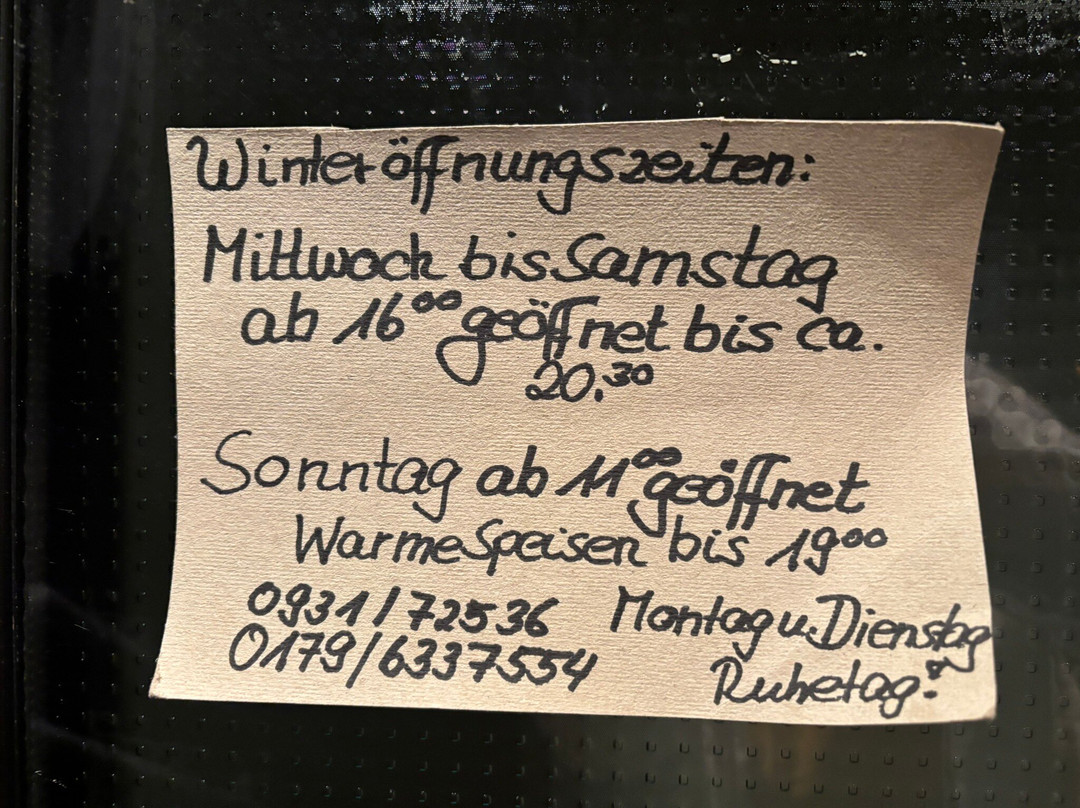 Winteröffnungszeiten:
Mittwoch bis Samstag
ab 16⁰⁰ geöffnet bis ca.
20.³⁰
Sonntag ab 11⁰⁰ geöffnet
Warme Speisen bis 19⁰⁰
0931/72536
0179/6337554
Montag u. Dienstag
Ruhetag!